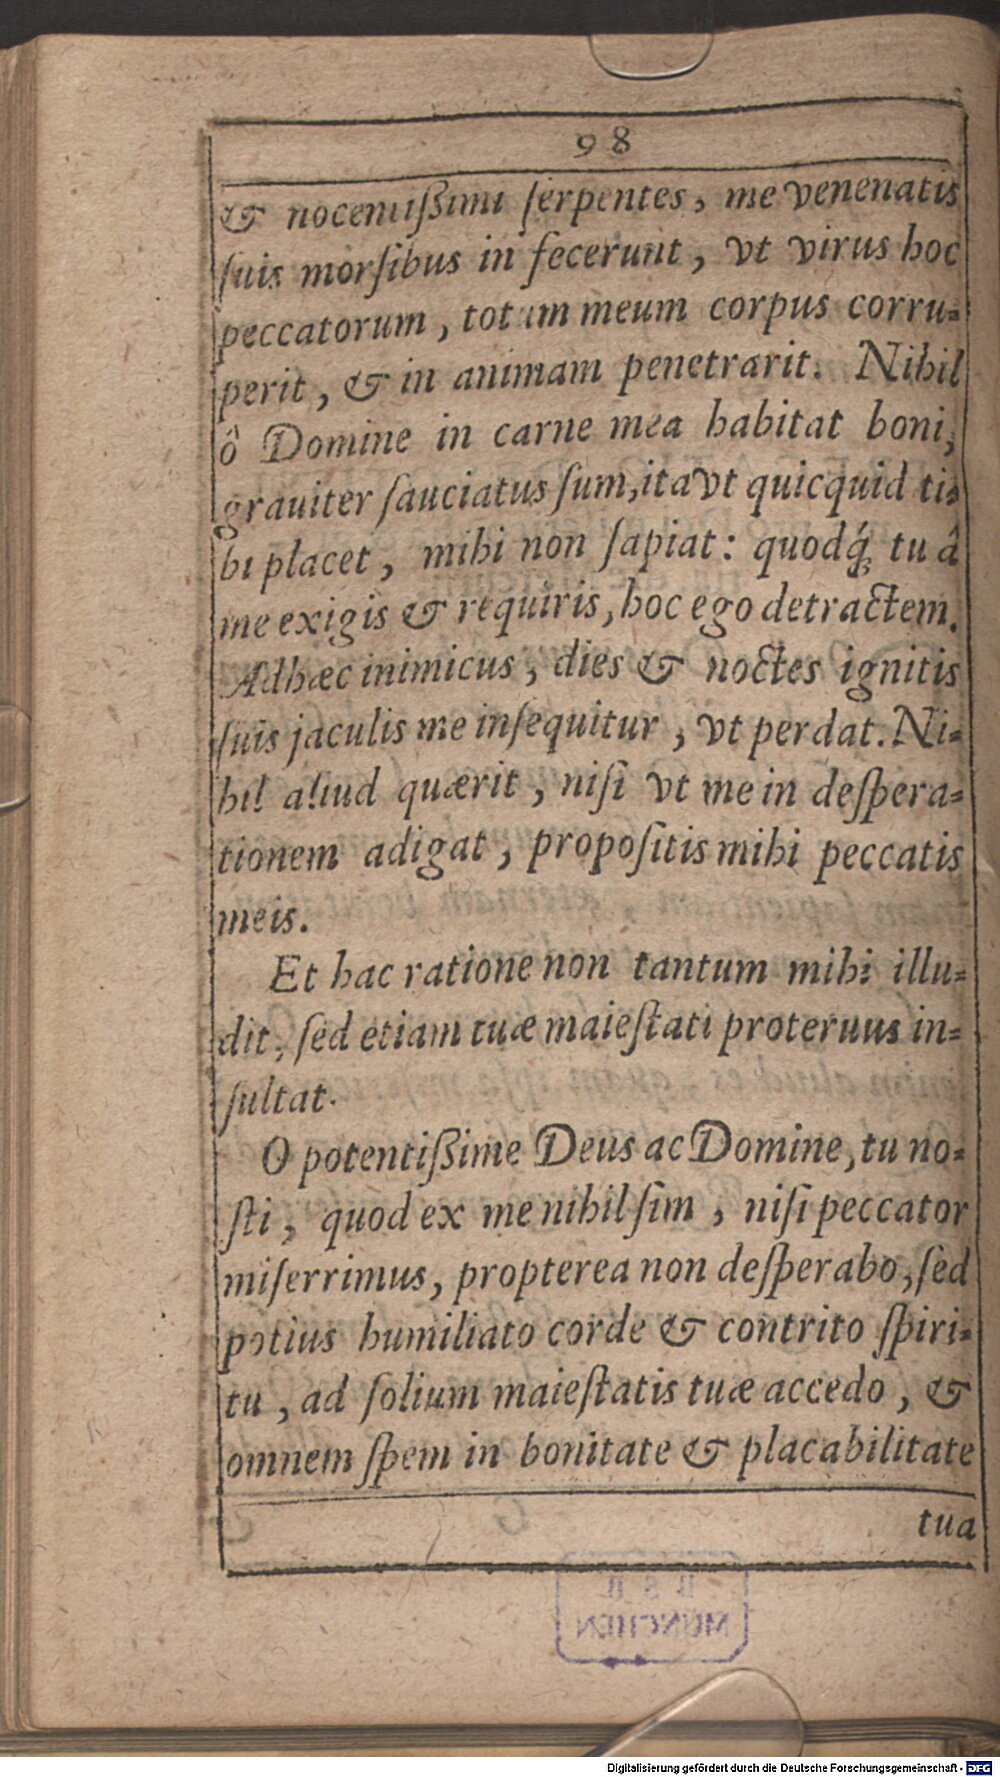 98
& nocentißimi ſerpentes, me venenatis
ſuis morſibus in fecerunt, vt virus hoc
peccatorum, totum meum corpus corru=
perit, & in animam penetrarit. Nihil
ô Domine in carne mea habitat boni,
grauiter ſauciatus ſum, ita vt quicquid ti=
bi placet, mihi non ſapiat: quodq́; tu â
me exigis & requiris, hoc ego detractem.
Adhæc inimicus, dies & noctes ignitis
ſuis jaculis me inſequitur, vt perdat. Ni=
hil aliud quærit, niſi vt me in deſpera=
tionem adigat, propoſitis mihi peccatis
meis.
Et hac ratione non tantum mihi illu=
dit, ſed etiam tuæ maieſtati proteruus in=
ſultat.
O potentißime Deus ac Domine, tu no=
ſti, quod ex me nihil ſim, niſi peccator
miſerrimus, propterea non deſperabo, ſed
potius humiliato corde & contrito ſpiri=
tu, ad ſolium maieſtatis tuæ accedo, &
omnem ſpem in bonitate & placabilitate
tua
MÜNCHEN
Digitalisierung gefördert durch die Deutsche Forschungsgemeinschaft - DFG